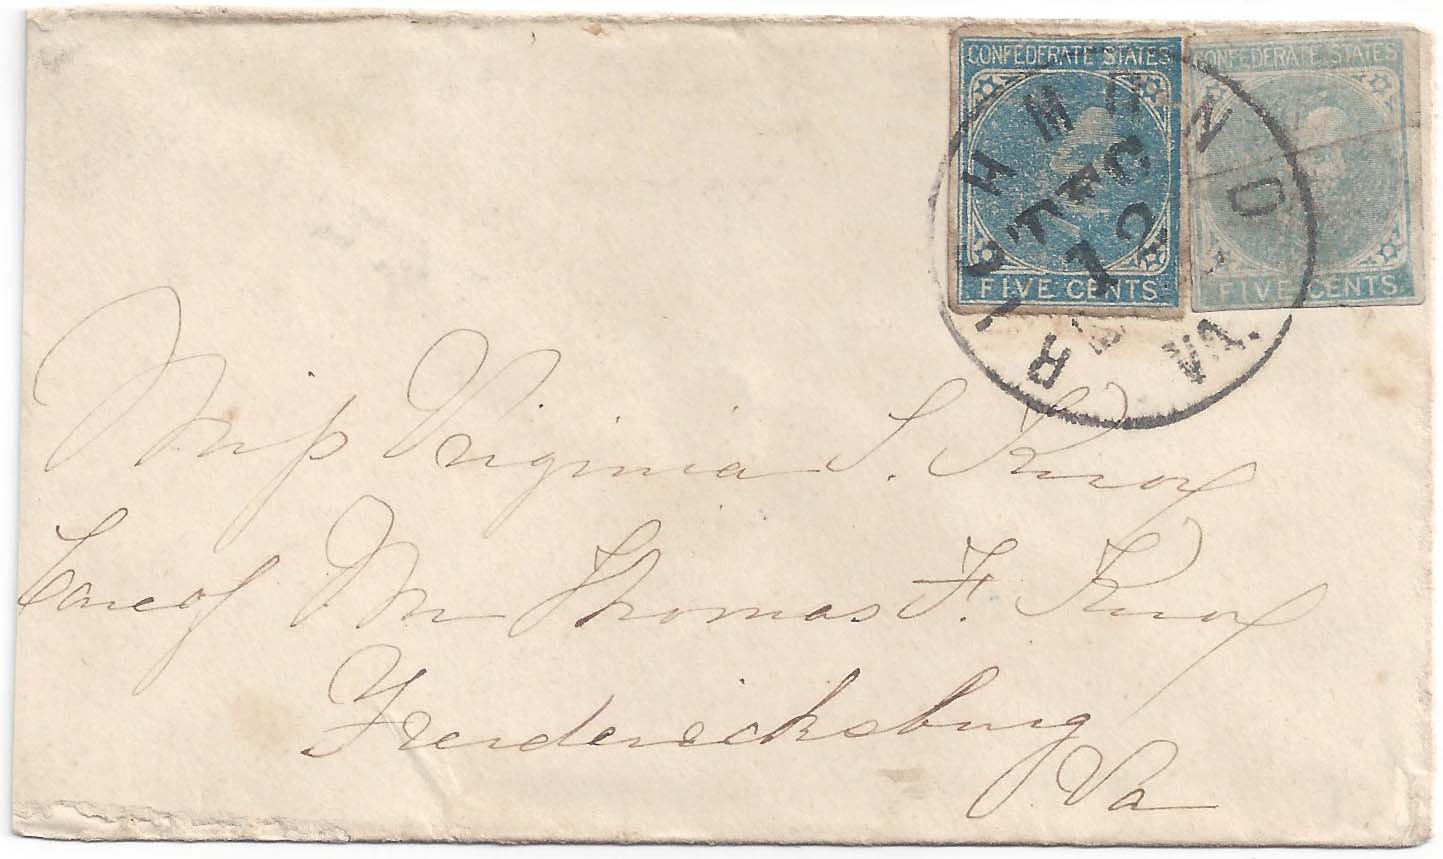 CONFEDERATE STATES
FIVE CENTS
CONFEDERATE STATES
FIVE CENTS
RICHMOND VA.
DEC
12
Miss Virginia S. Knox
Care of Mr Thomas F. Knox
Fredericksburg
Va